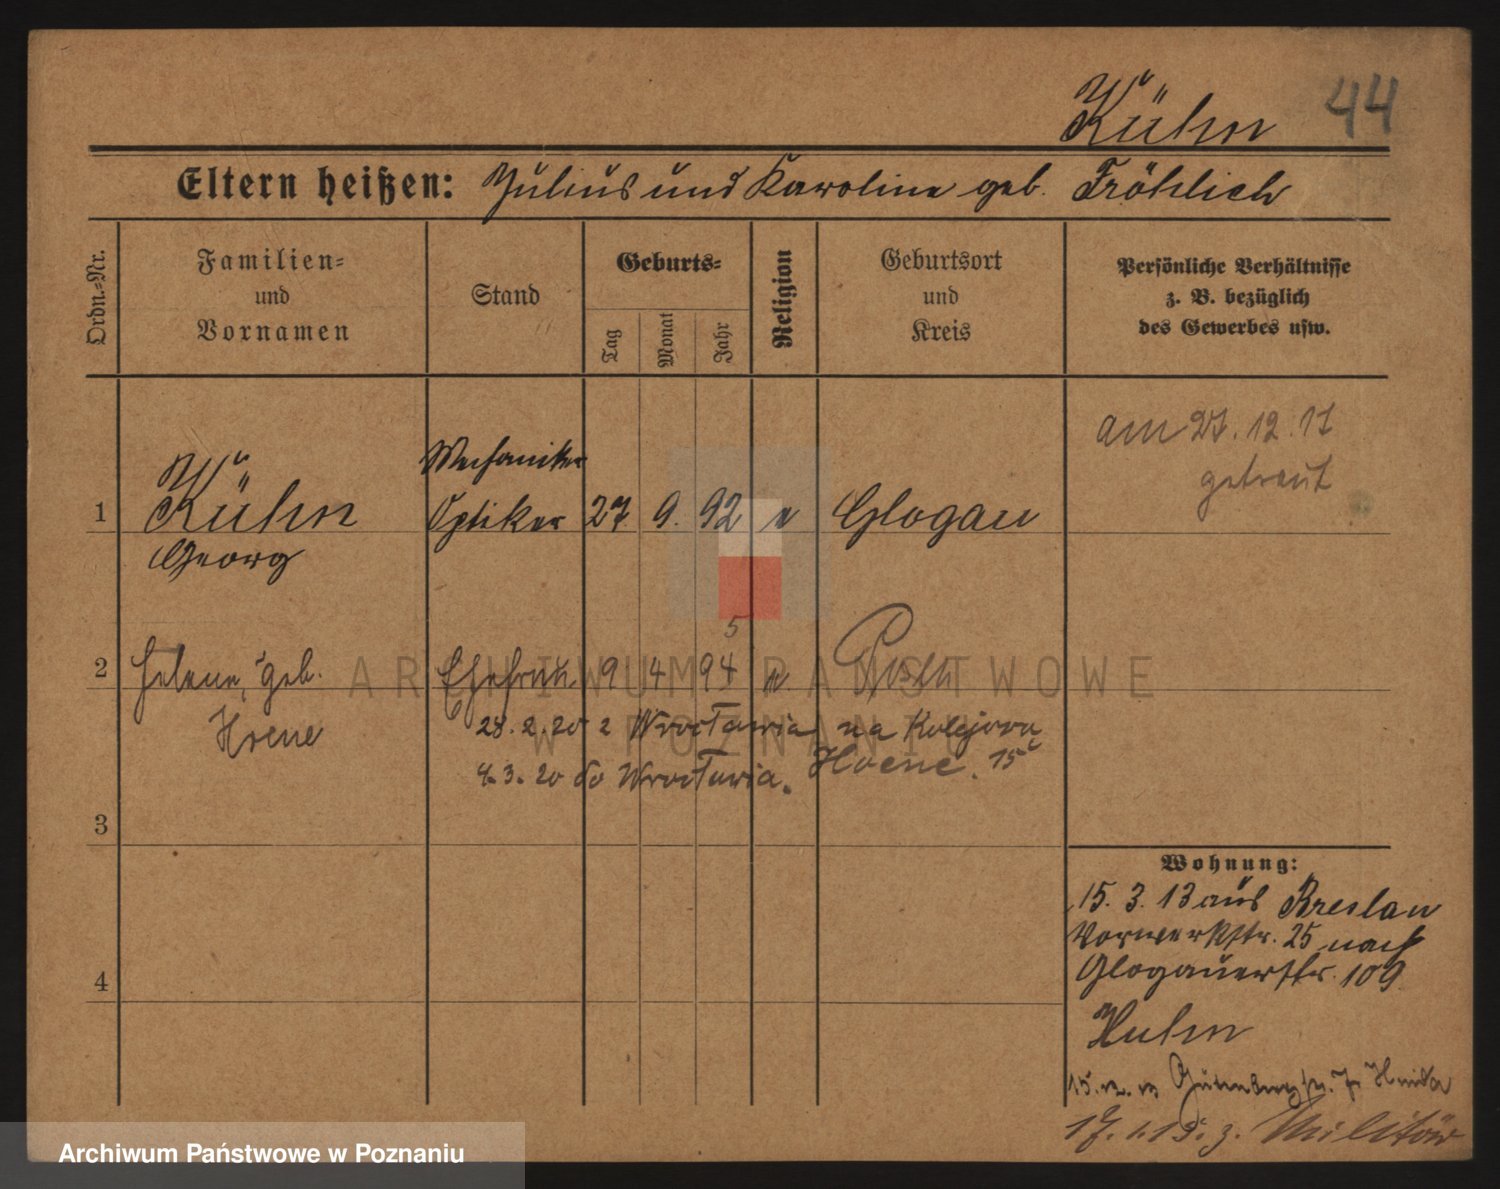 44
Kühn
Eltern heißen: Julius und Karoline geb. Fröhlich
Ordn.-Nr.
Familien-
und
Vornamen
Stand
Geburts-
Tag
Monat
Jahr
Religion
Geburtsort
und
Kreis
Persönliche Verhältnisse
z. B. bezüglich
des Gewerbes usw.
am 27. 12. 17
getraut
Mechaniker
1 Kühn Optiker 27 9. 92 e Glogau
Georg
5
2 Helene, geb. Ehefrau 9 4 94 e. Posen
Hoene
28. 2. 20 z Wrocławia na Kolejowa
Hoene. 15
4. 3. 20 do Wrocławia.
3
4
Wohnung:
15. 3. 13 aus Breslau
Vorwerkstr. 25 nach
Glogauerstr. 109
Huhn
Gutenbergstr. 7
17. 1. 15. z. Militär
ARCHIWUM PAŃSTWOWE
W POZNANIU
Archiwum Państwowe w Poznaniu